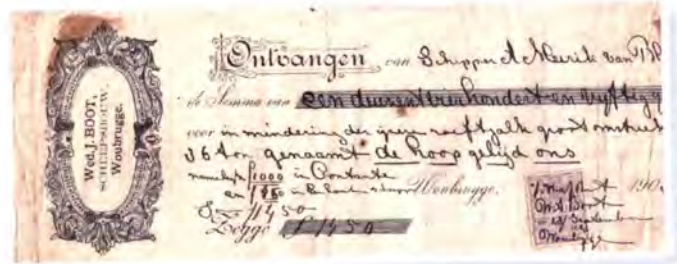 Wed. J. BOOT,
SCHEEPSBOUW,
Woubrugge.
Ontvangen van Schipper A Meerik van
de Somma van een duizent vierhondert en vyftig
voor in mindering der groot omstreek
36 ton genaamt de Hoop gelijd ons
namelyk f 1000 in Contante
en 450 in Woubrugge, 190
f 1450
Zegge f 1450
Woubrugge